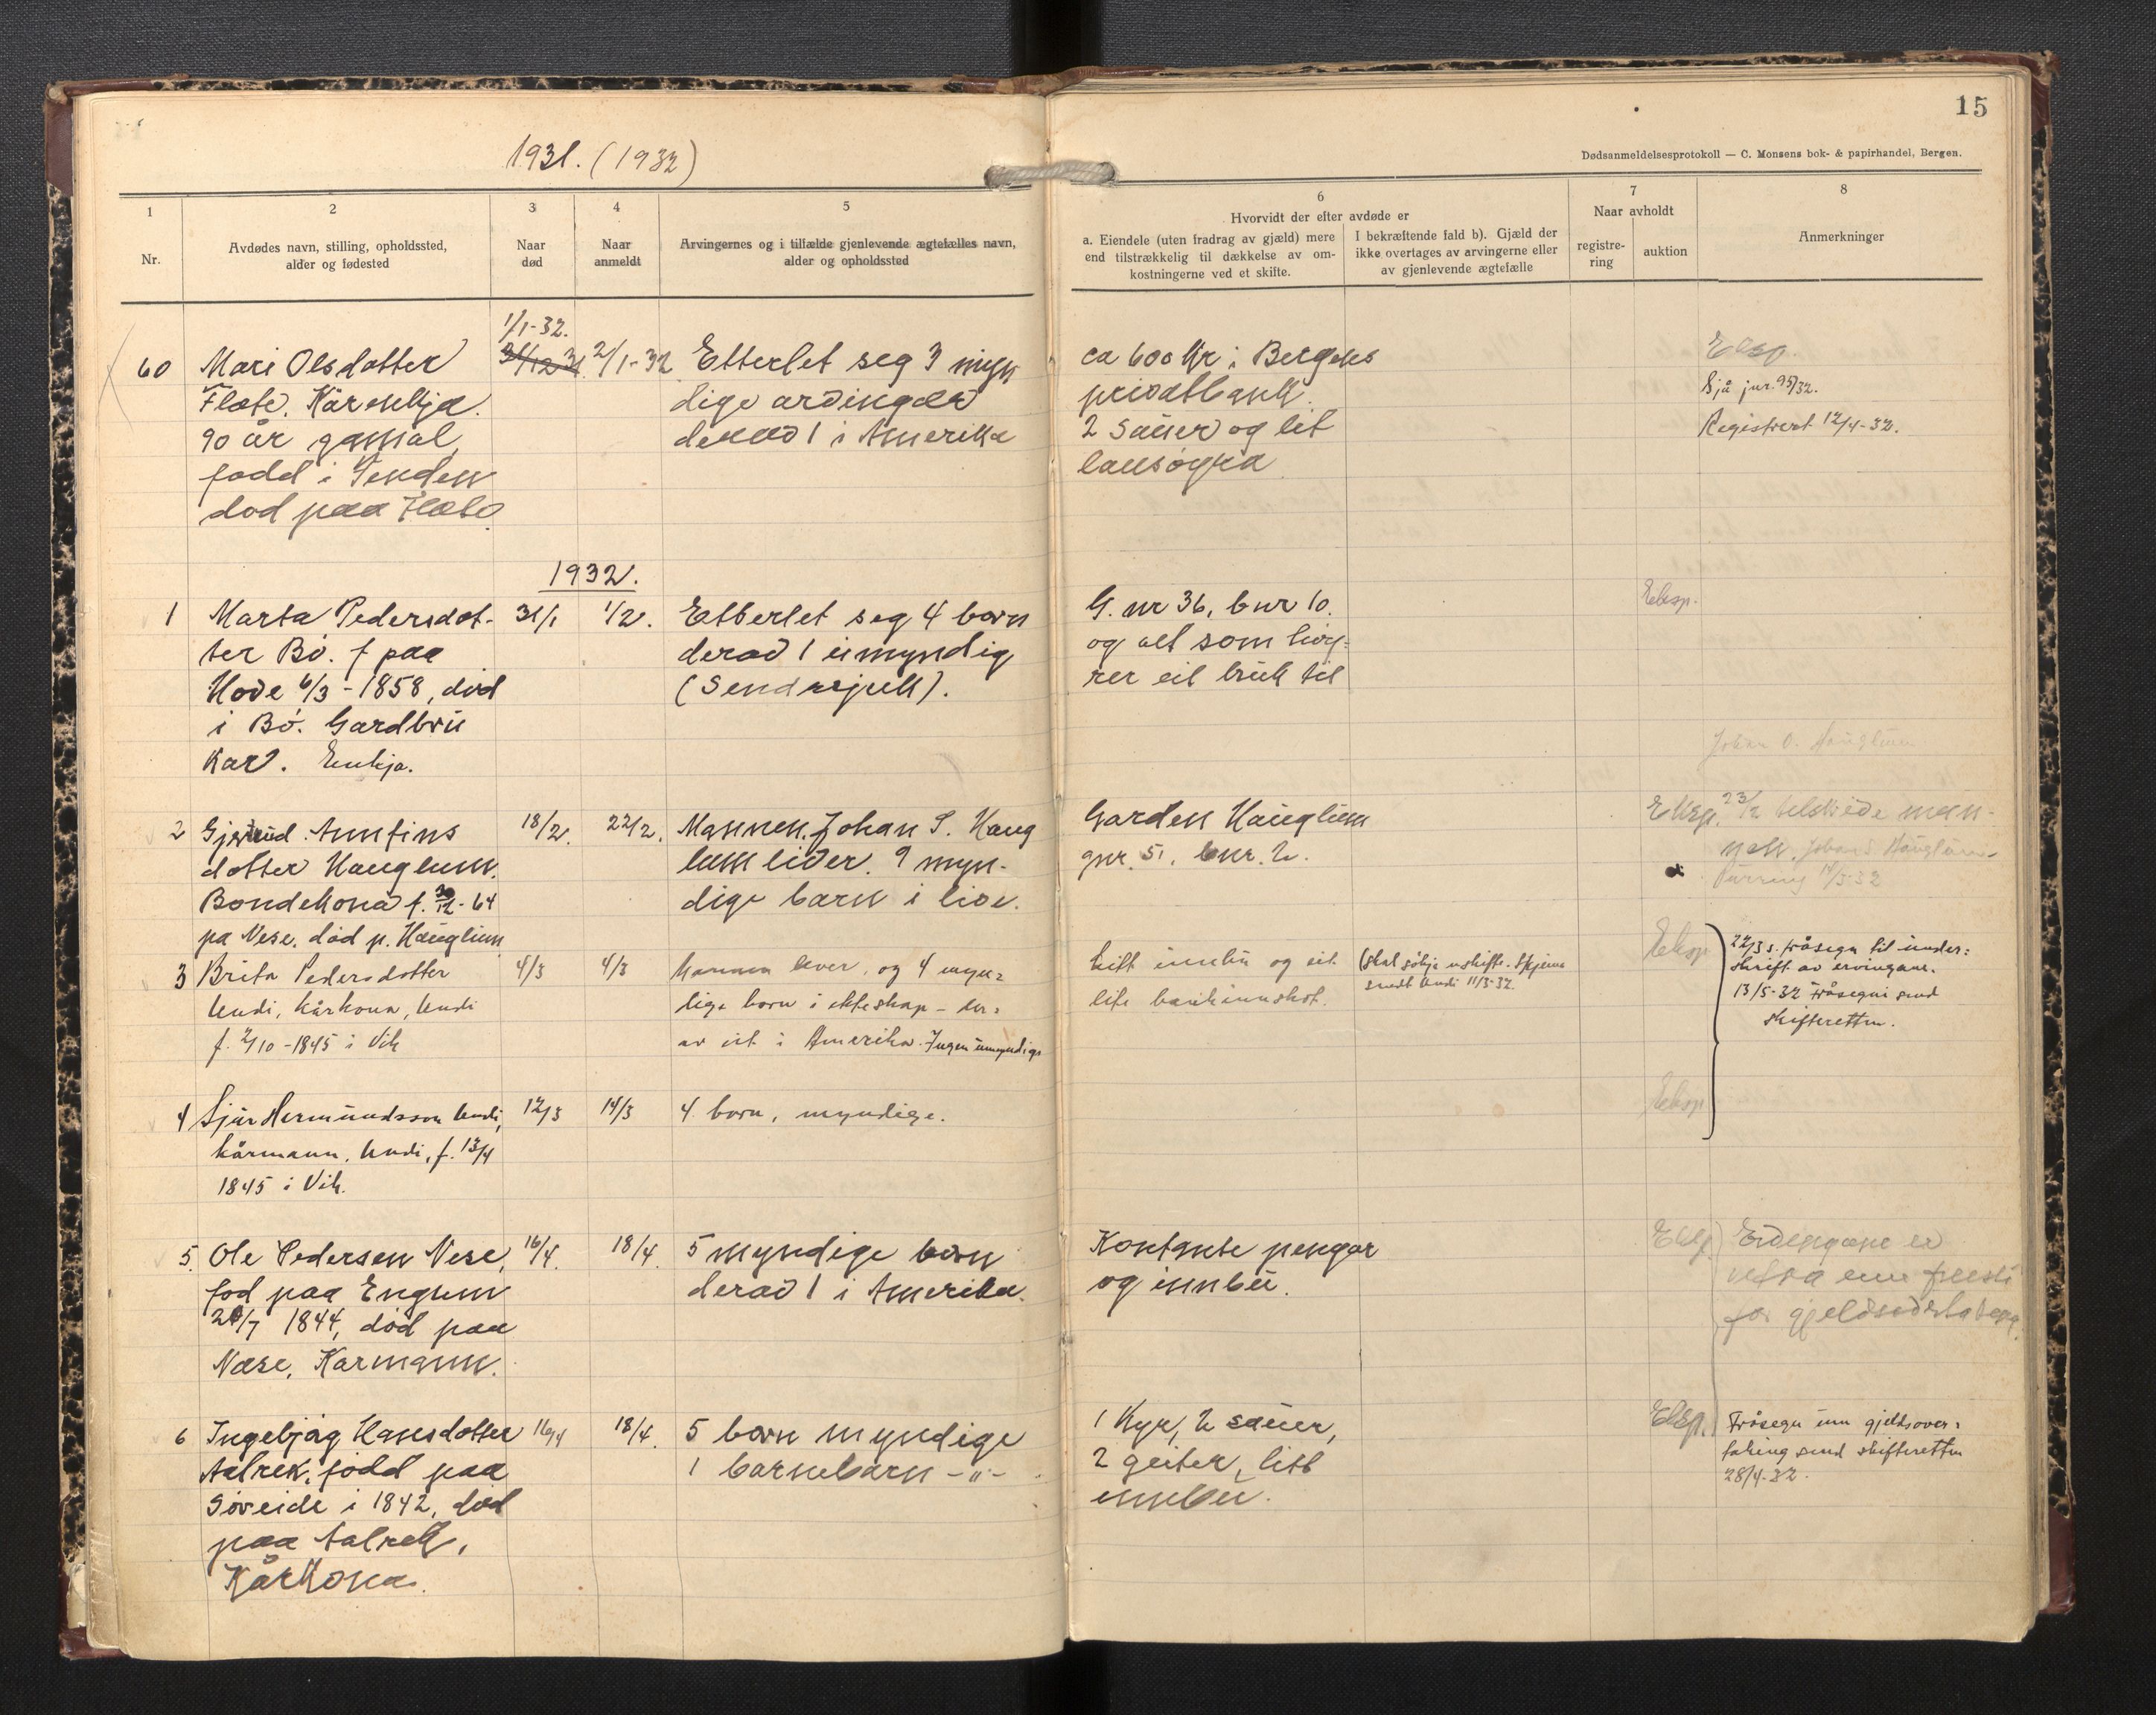 15
1931. (1932)
Dødsanmeldelsesprotokoll — C. Monsens bok- & papirhandel, Bergen.
1
Nr.
2
Avdødes navn, stilling, opholdssted,
alder og fødested
3
Naar
død
4
Naar
anmeldt
5
Arvingernes og i tilfælde gjenlevende ægtefælles navn,
alder og opholdssted
6
Hvorvidt der efter avdøde er
a. Eiendele (uten fradrag av gjæld) mere
end tilstrækkelig til dækkelse av om-
kostningerne ved et skifte.
I bekræftende fald b). Gjæld der
ikke overtages av arvingerne eller
av gjenlevende ægtefælle
7
Naar avholdt
registre-
ring
auktion
8
Anmerkninger
60
Mari Olsdotter
Flete. Kårenkja.
90 år gamal
fødd i
død paa Flete
1/1-32.
31/12 31
2/1-32
Etterlet seg 3 myn
dige arvingar
derav 1 i Amerika
ca 600 kr i Bergens
privatbank.
2 sauer og lit
lausøyra
Eksp.
Sjå jnr. 95/32.
Registrert 12/4-32.
1932.
1
Marta Pedersdot-
ter Bø. f paa
Hove 6/3-1858, død
i Bø. Gardbru
kar. Enkja.
31/1
1/2.
Etterlet seg 4 born
derav 1 umyndig
(Sendesjuk).
G. nr 36, bnr 10.
og alt som høy-
rer eit bruk til
Eksp.
Johan O. Hauglum
2
Gjertrud Arnfins
dotter Hauglum.
Bondekona f. 30/12-64
pa Nese, død p. Hauglum
18/2.
22/2.
Mannen Johan S. Haug
lum liver. 9 myn-
dige barn i live.
Garden Hauglum
gnr. 51, bnr. 2.
Eksp.
23/2 tilskrede man-
nen, Johan S Hauglum
Purring 14/3-32
3
Brita Pedersdotter
Undi, kårkona, Undi
f. 2/10-1845 i Vik
4/3
4/3
Mannen lever, og 4 myn=
dige born i ekteskap - der=
av eit i Amerika. Ingen umyndige
Litt innbu og eit
lite bankinnskot.
(Skal søkja uskifte. Skjema
sendt Undi 11/3-32.
Eksp
22/3 s. fråsegn til under=
skrift av ervingane.
13/5-32 fråsegni send
skifteretten.
4
Sjur Hermundsson Undi,
kårmann, Undi, f. 13/4
1845 i Vik.
12/3
14/3
4 born, myndige.
Eksp
5.
Ole Pedersen Nese,
fød paa Engum
26/7 1844, død paa
Nese, Karmann.
16/4.
18/4.
5 myndige born
derav 1 i Amerika.
Kontante pengar
og innbu.
Eksp.
Ervingane er
um fresti
for gjeldsovertaking.
6
Ingebjørg Hansdotter
Aalrek, fødd paa
Gøreide i 1842, død
paa Aalrek,
Kårkona.
16/4
18/4.
5 born myndige
1 barnebarn -"-
1 Kyr, 2 sauer,
2 geiter, litt
innbu.
Eksp.
Fråsegn um gjeldsover=
taking send skifteretten
28/4-32.